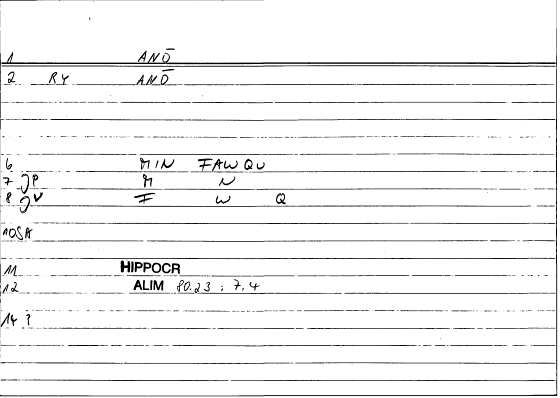 1 ANŌ
2 RY ANŌ
6 MIN FAWQU
7 JP M N
8 JV F W Q
10SA
11 HIPPOCR
12 ALIM 80.23 : 7.4
14 ?